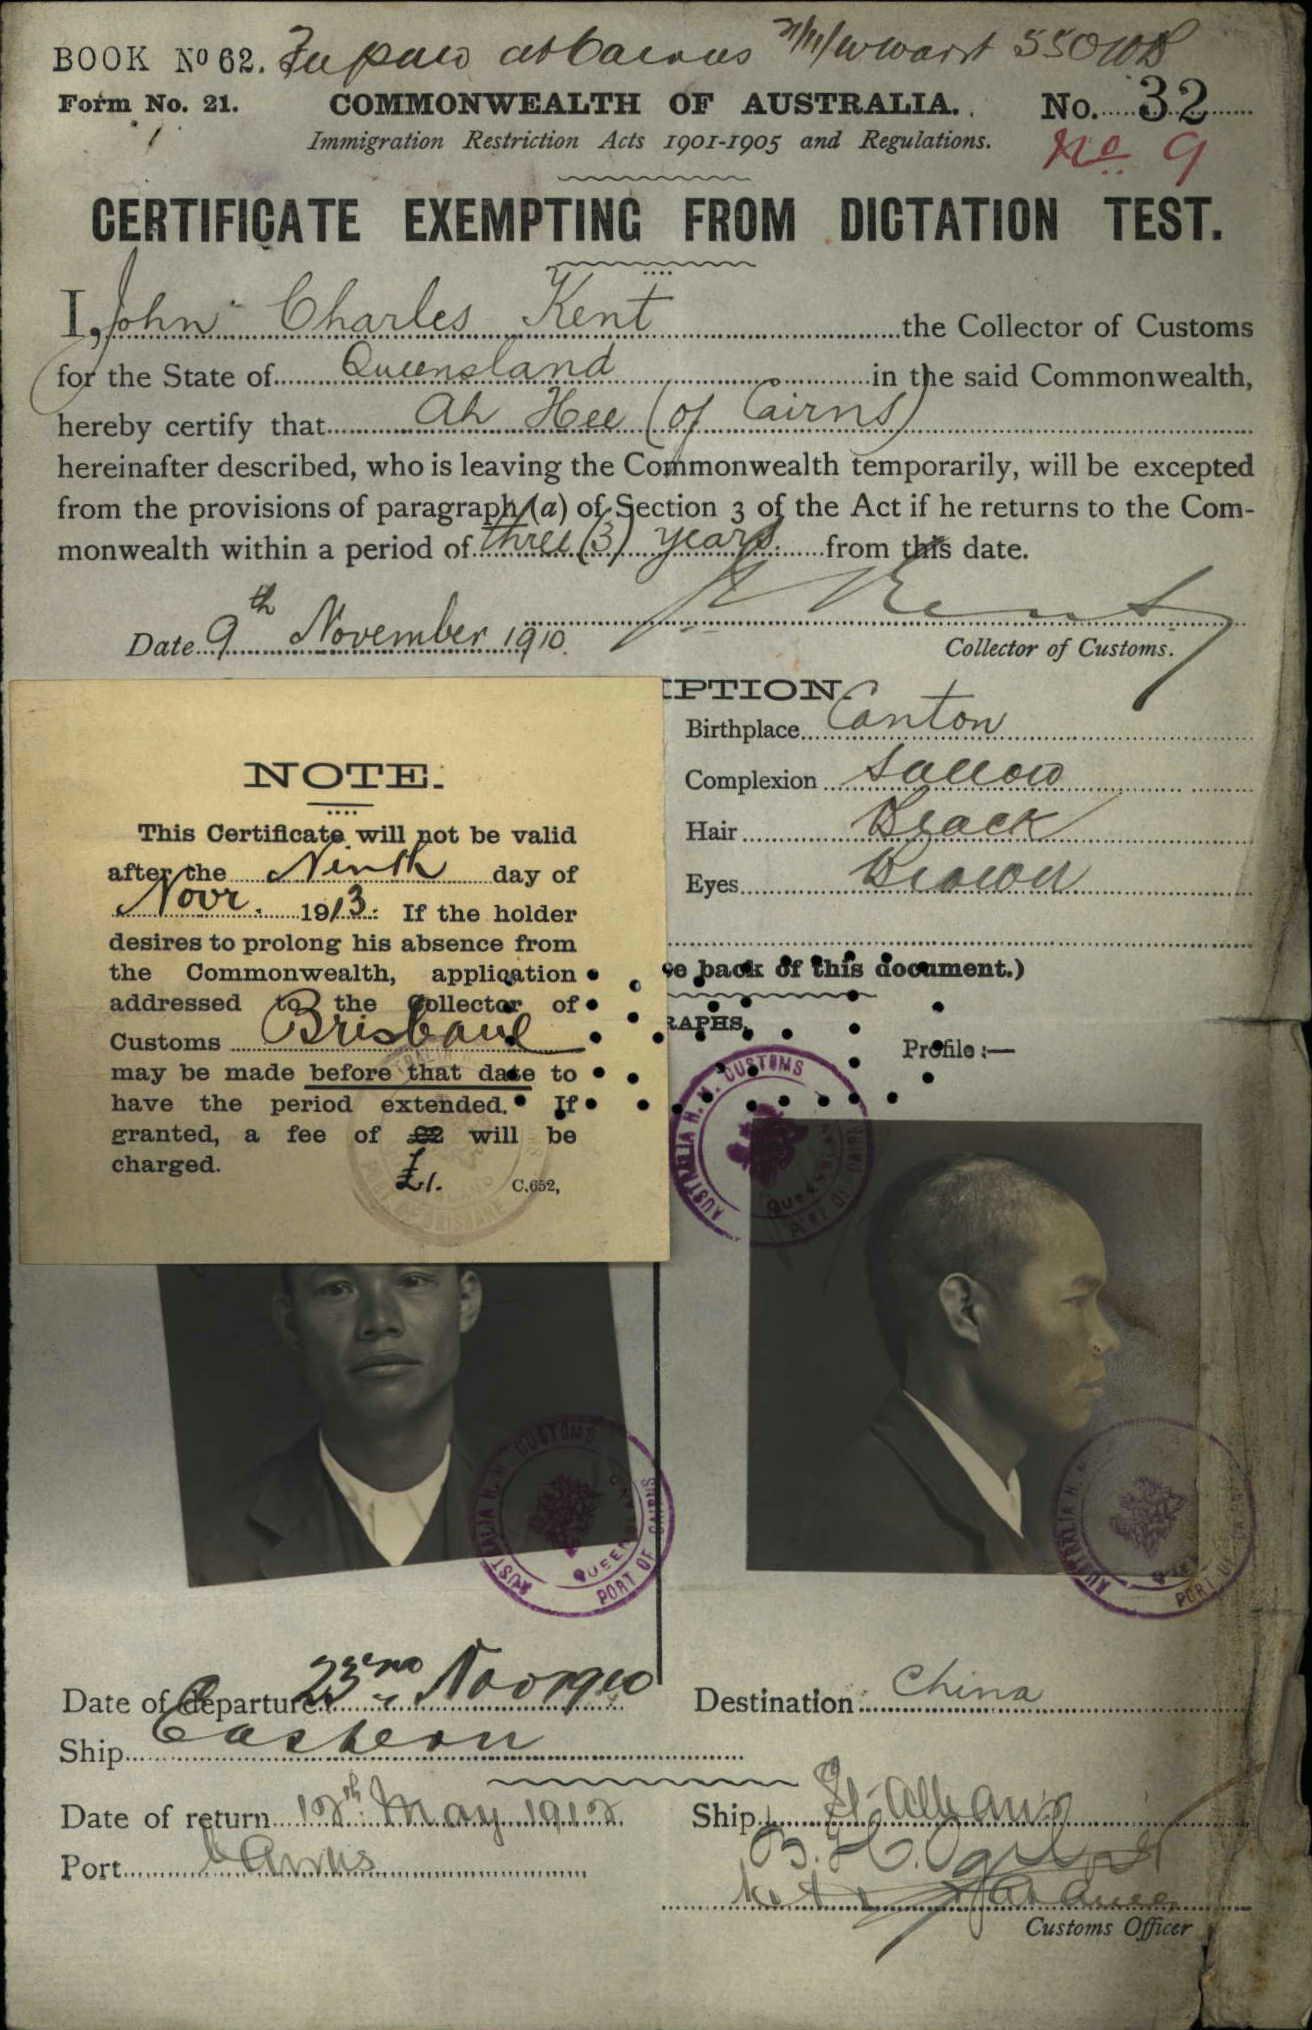 BOOK No 62. at Cairns 550
Form No. 21. COMMONWEALTH OF AUSTRALIA. No. 32
1 Immigration Restriction Acts 1901-1905 and Regulations. No. 9
CERTIFICATE EXEMPTING FROM DICTATION TEST.
I, John Charles Kent the Collector of Customs
for the State of Queensland in the said Commonwealth,
hereby certify that Ah Hee (of Cairns)
hereinafter described, who is leaving the Commonwealth temporarily, will be excepted
from the provisions of paragraph (a) of Section 3 of the Act if he returns to the Com-
monwealth within a period of three (3) years from this date.
Kent
Date 9th November 1910. Collector of Customs.
IPTION.
Birthplace Canton
Complexion Sallow
Hair Black
Eyes Brown
e back of this document.)
RAPHS.
Profile:—
NOTE.
This Certificate will not be valid
after the Ninth day of
Novr. 1913. If the holder
desires to prolong his absence from
the Commonwealth, application
addressed to the Collector of
Customs Brisbane
may be made before that date to
have the period extended. If
granted, a fee of £2 will be
charged. £1. C.652,
AUSTRALIA H. M. CUSTOMS QUEENSLAND PORT OF CAIRNS
AUSTRALIA H. M. CUSTOMS QUEENSLAND PORT OF CAIRNS
Date of departure 23rd Nov 1910 Destination China
Ship Eastern
Date of return 12th May 1912 Ship St Albans
Port Cairns B. H.
Customs Officer